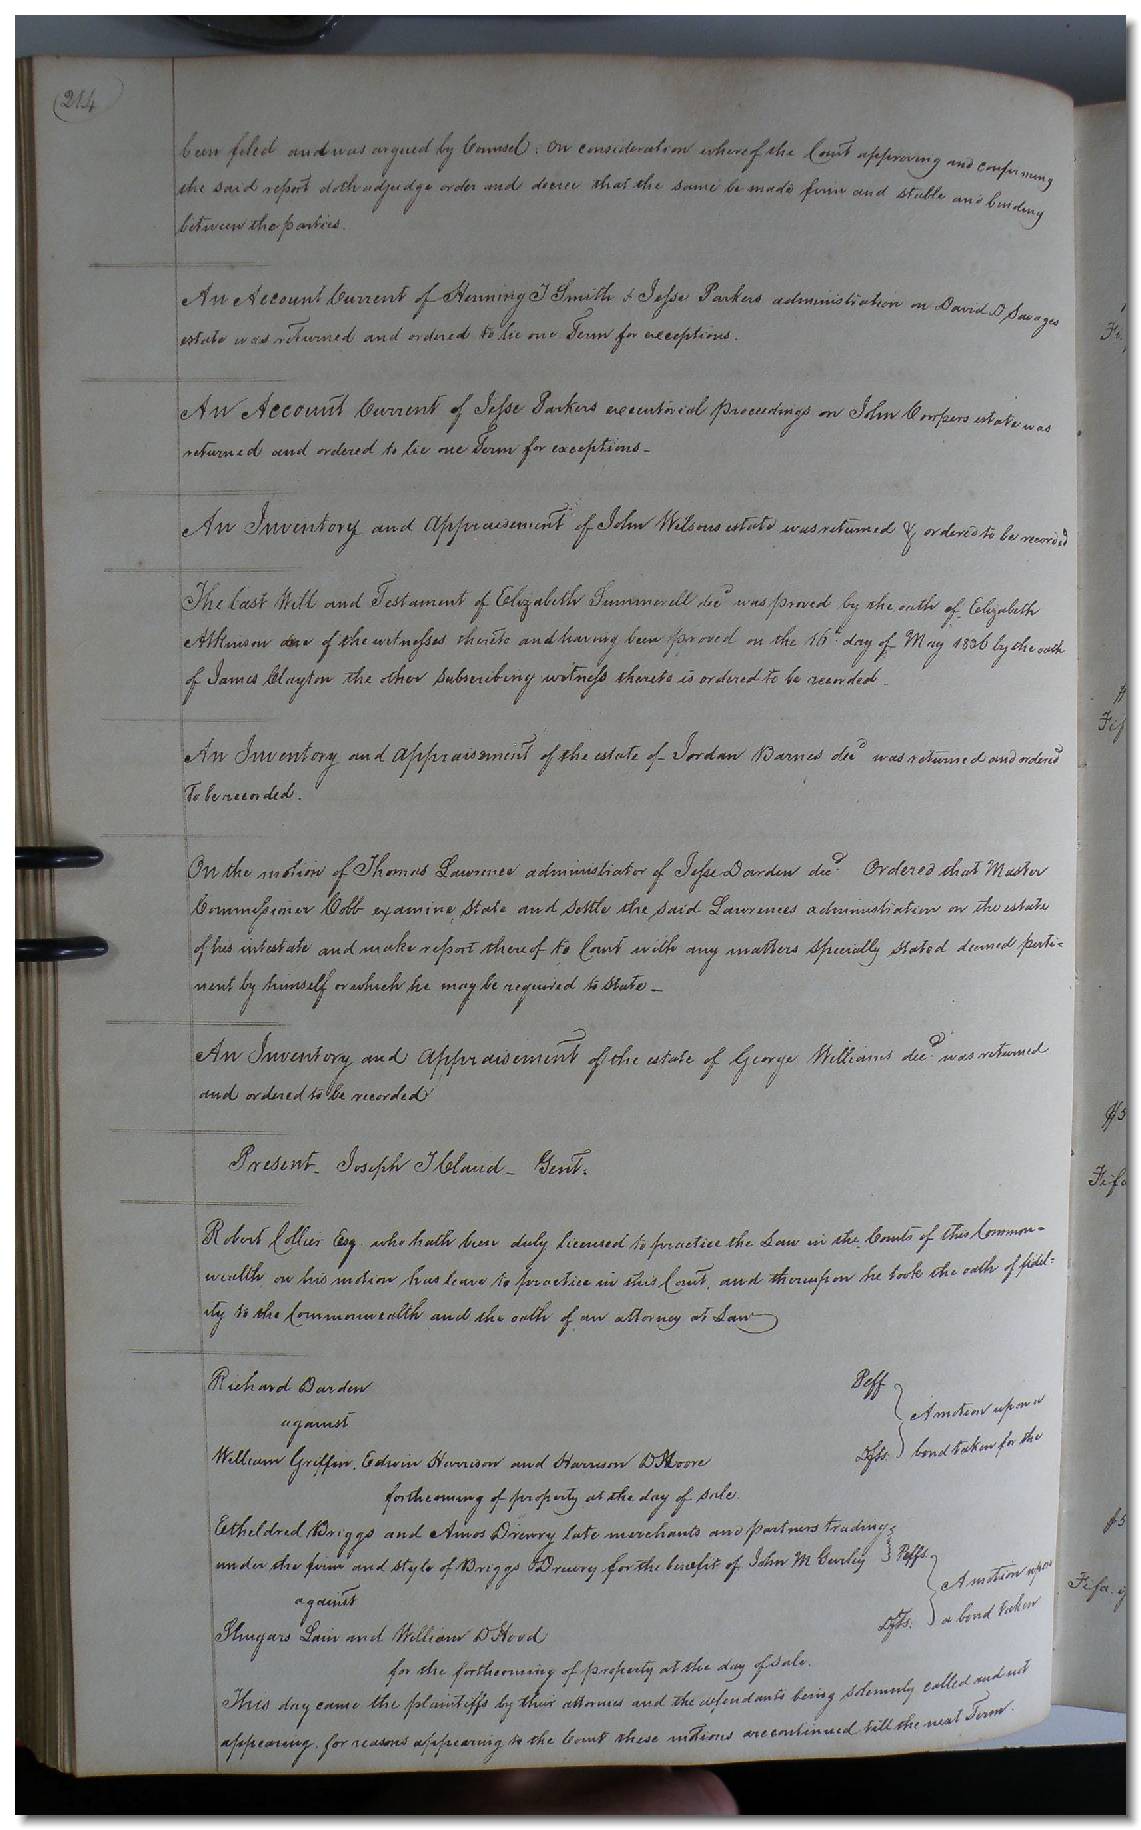 214
been filed and was argued by Counsel: On consideration whereof the Court approving and confirming
the said report doth adjudge order and decree that the same be made firm and stable and binding
between the parties.
An Account Current of Henning T Smith & Jesse Parkers administration on David D Savages
estate was returned and ordered to lie one Term for exceptions.
An Account Current of Jesse Parkers executorial proceedings on John Coopers estate was
returned and ordered to lie one Term for exceptions
An Inventory and Appraisement of John Wilsons estate was returned & ordered to be recorded
The last Will and Testament of Elizabeth Summerell decd was proved by the oath of Elizabeth
Atkinson one of the witnesses thereto and having been proved on the 16th day of May 1836 by the oath
of James Clayton the other subscribing witness thereto is ordered to be recorded
An Inventory and appraisement of the estate of Jordan Barnes decd was returned and ordered
to be recorded.
On the motion of Thomas Lawrence administrator of Jesse Darden decd. Ordered that Master
Commissioner Cobb examine state and settle the said Lawrences administration on the estate
of his intestate and make report thereof to Court with any matters specially stated deemed perti=
nent by himself or which he may be required to state
An Inventory and Appraisement of the estate of George Williams decd. was returned
and ordered to be recorded
Present Joseph T Claud Gent.
Robert Collier Esq. who hath been duly licensed to practice the Law in the Courts of this Common=
wealth on his motion has leave to practice in this Court, and thereupon he took the oath of fidel=
ity to the Commonwealth and the oath of an attorney at Law
Richard Darden Peff
against A motion upon a
William Griffin, Edwin Harrison and Harrison D Hoore Dfts. bond taken for the
forthcoming of property at the day of sale.
Etheldred Briggs and Amos Drewry late merchants and partners trading
under the firm and style of Briggs & Drewry for the benefit of John M Gurley Peffs. A motion upon
against
Shugars Lain and William D Hood Dfts. a bond taken
for the forthcoming of property at the day of sale.
This day came the plaintiffs by their attornies and the defendants being solemnly called and not
appearing, for reasons appearing to the Court these motions are continued till the next Term.